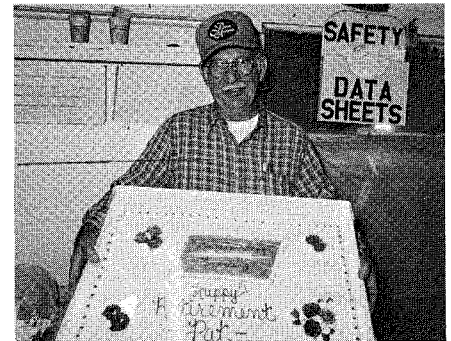 SAFETY
DATA
SHEETS
Happy
Retirement
Pat-